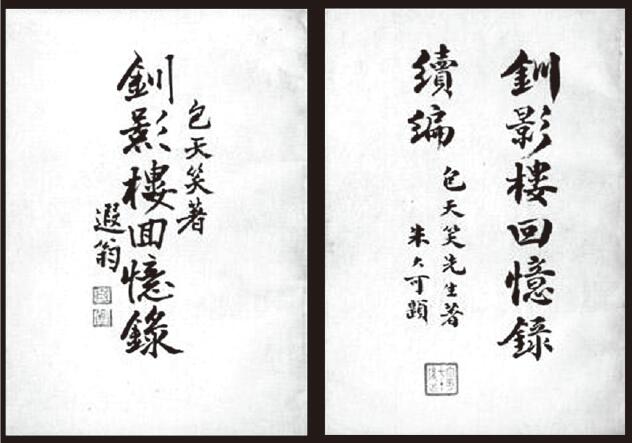 包天笑著
釧影樓回憶錄
遐翁
釧影樓回憶錄
續編
包天笑先生著
朱大可題